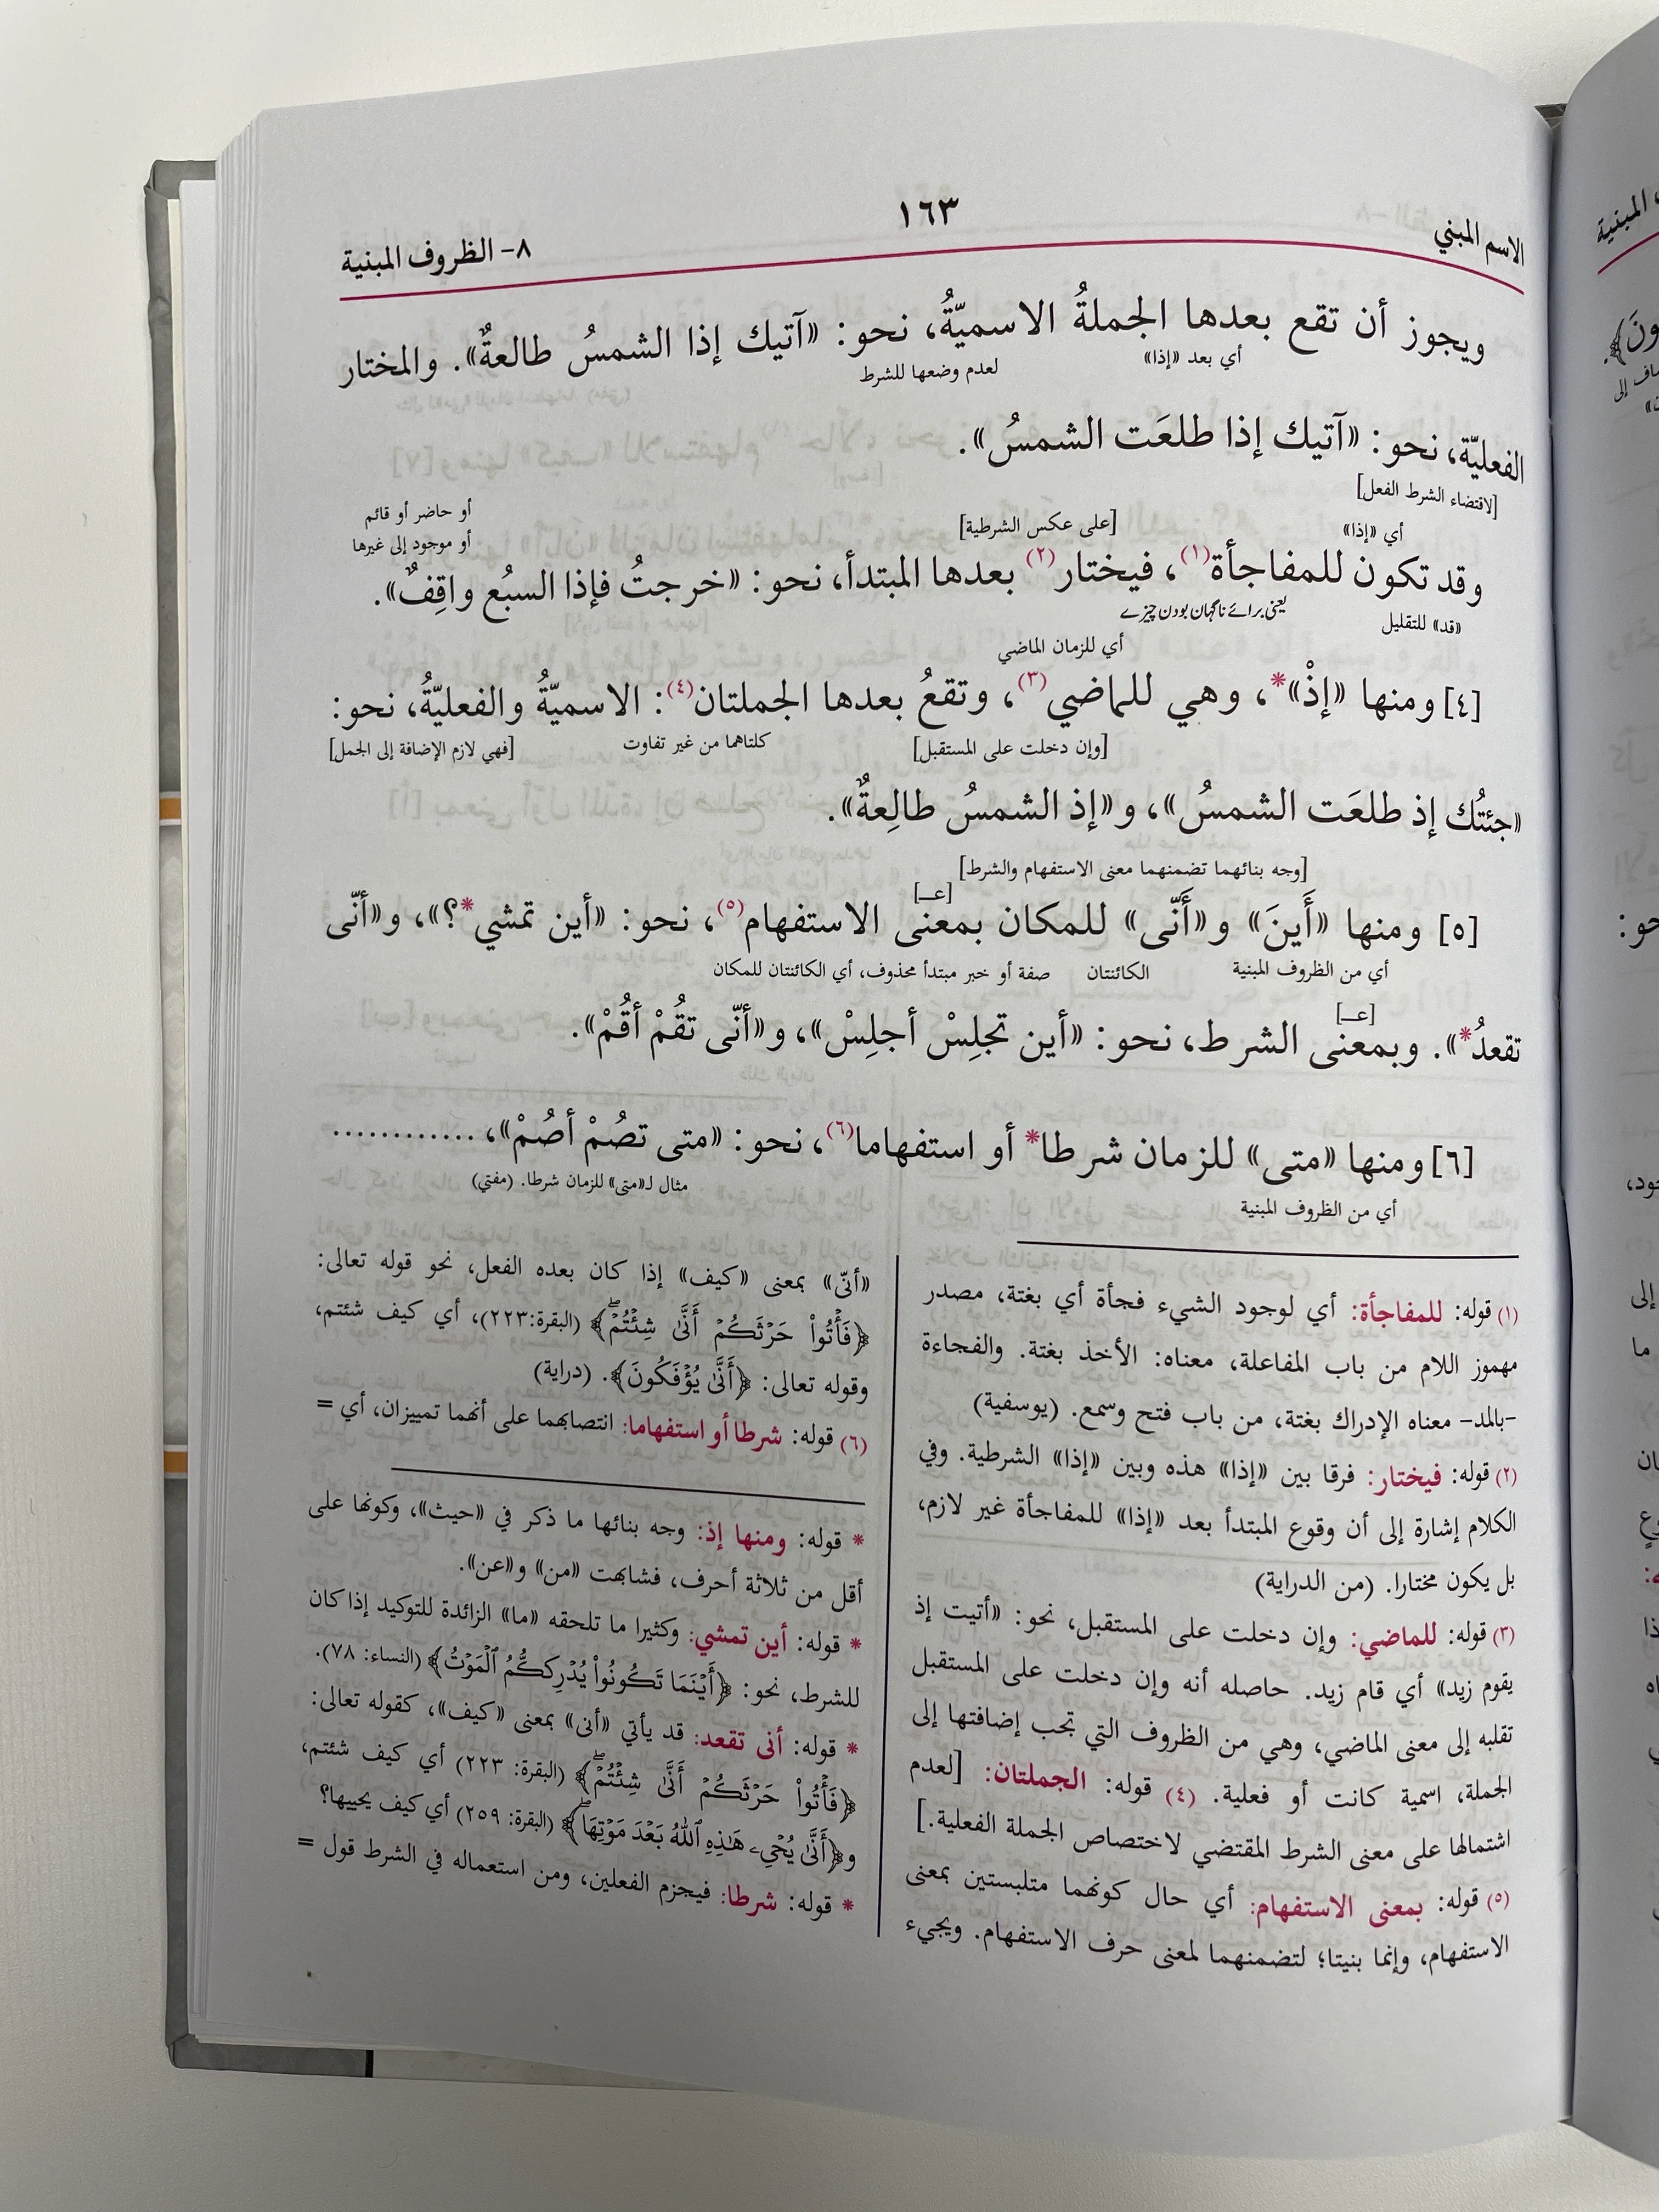 الاسم المبني
١٦٣
٨- الظروف المبنية
ويجوز أن تقع بعدها الجملةُ الاسميّةُ، نحو: «آتيك إذا الشمسُ طالعةٌ». والمختار
أي بعد «إذا»
لعدم وضعها للشرط
الفعليّة، نحو: «آتيك إذا طلعَت الشمسُ».
[لاقتضاء الشرط الفعل]
أو حاضر أو قائم
أو موجود إلى غيرها
[على عكس الشرطية]
أي «إذا»
وقد تكون للمفاجأة(١)، فيختار(٢) بعدها المبتدأ، نحو: «خرجتُ فإذا السبُع واقِفٌ».
«قد» للتقليل
یعنی برائے ناگہان بودن چیزے
أي للزمان الماضي
[٤] ومنها «إذْ»*، وهي للماضي(٣)، وتقعُ بعدها الجملتان(٤): الاسميّةُ والفعليّةُ، نحو:
[وإن دخلت على المستقبل]
كلتاهما من غير تفاوت
[فهي لازم الإضافة إلى الجمل]
«جئتُك إذ طلعَت الشمسُ»، و«إذ الشمسُ طالِعةٌ».
[وجه بنائهما تضمنهما معنى الاستفهام والشرط]
[عـ]
[٥] ومنها «أَينَ» و«أَنّى» للمكان بمعنى الاستفهام(٥)، نحو: «أين تمشي*؟»، و«أنّى
أي من الظروف المبنية
الكائنتان
صفة أو خبر مبتدأ محذوف، أي الكائنتان للمكان
[عـ]
تقعدُ*». وبمعنى الشرط، نحو: «أين تجلِسْ أجلِسْ»، و«أنّى تقُمْ أقُمْ».
[٦] ومنها «متى» للزمان شرطا* أو استفهاما(٦)، نحو: «متى تصُمْ أصُمْ»، ............
أي من الظروف المبنية
مثال لـ«متى» للزمان شرطا. (مفتي)
(١) قوله: للمفاجأة: أي لوجود الشيء فجأة أي بغتة، مصدر
مهموز اللام من باب المفاعلة، معناه: الأخذ بغتة. والفجاءة
-بالمد- معناه الإدراك بغتة، من باب فتح وسمع. (يوسفية)
(٢) قوله: فيختار: فرقا بين «إذا» هذه وبين «إذا» الشرطية. وفي
الكلام إشارة إلى أن وقوع المبتدأ بعد «إذا» للمفاجأة غير لازم،
بل يكون مختارا. (من الدراية)
(٣) قوله: للماضي: وإن دخلت على المستقبل، نحو: «أتيت إذ
يقوم زيد» أي قام زيد. حاصله أنه وإن دخلت على المستقبل
تقلبه إلى معنى الماضي، وهي من الظروف التي تجب إضافتها إلى
الجملة، اسمية كانت أو فعلية. (٤) قوله: الجملتان: [لعدم
اشتمالها على معنى الشرط المقتضي لاختصاص الجملة الفعلية.]
(٥) قوله: بمعنى الاستفهام: أي حال كونهما متلبستين بمعنى
الاستفهام، وإنما بنيتا؛ لتضمنهما لمعنى حرف الاستفهام. ويجيء
«أنّى» بمعنى «كيف» إذا كان بعده الفعل، نحو قوله تعالى:
﴿فَأْتُوا۟ حَرْثَكُمْ أَنَّىٰ شِئْتُمْۖ﴾ (البقرة:٢٢٣)، أي كيف شئتم،
وقوله تعالى: ﴿أَنَّىٰ يُؤْفَكُونَ﴾. (دراية)
(٦) قوله: شرطا أو استفهاما: انتصابهما على أنهما تمييزان، أي =
* قوله: ومنها إذ: وجه بنائها ما ذكر في «حيث»، وكونها على
أقل من ثلاثة أحرف، فشابهت «من» و«عن».
* قوله: أين تمشي: وكثيرا ما تلحقه «ما» الزائدة للتوكيد إذا كان
للشرط، نحو: ﴿أَيْنَمَا تَكُونُوا۟ يُدْرِككُّمُ ٱلْمَوْتُ﴾ (النساء: ٧٨).
* قوله: أنى تقعد: قد يأتي «أنى» بمعنى «كيف»، كقوله تعالى:
﴿فَأْتُوا۟ حَرْثَكُمْ أَنَّىٰ شِئْتُمْۖ﴾ (البقرة: ٢٢٣) أي كيف شئتم،
و﴿أَنَّىٰ يُحْىِۦ هَـٰذِهِ ٱللَّهُ بَعْدَ مَوْتِهَاۖ﴾ (البقرة: ٢٥٩) أي كيف يحييها؟
* قوله: شرطا: فيجزم الفعلين، ومن استعماله في الشرط قول =